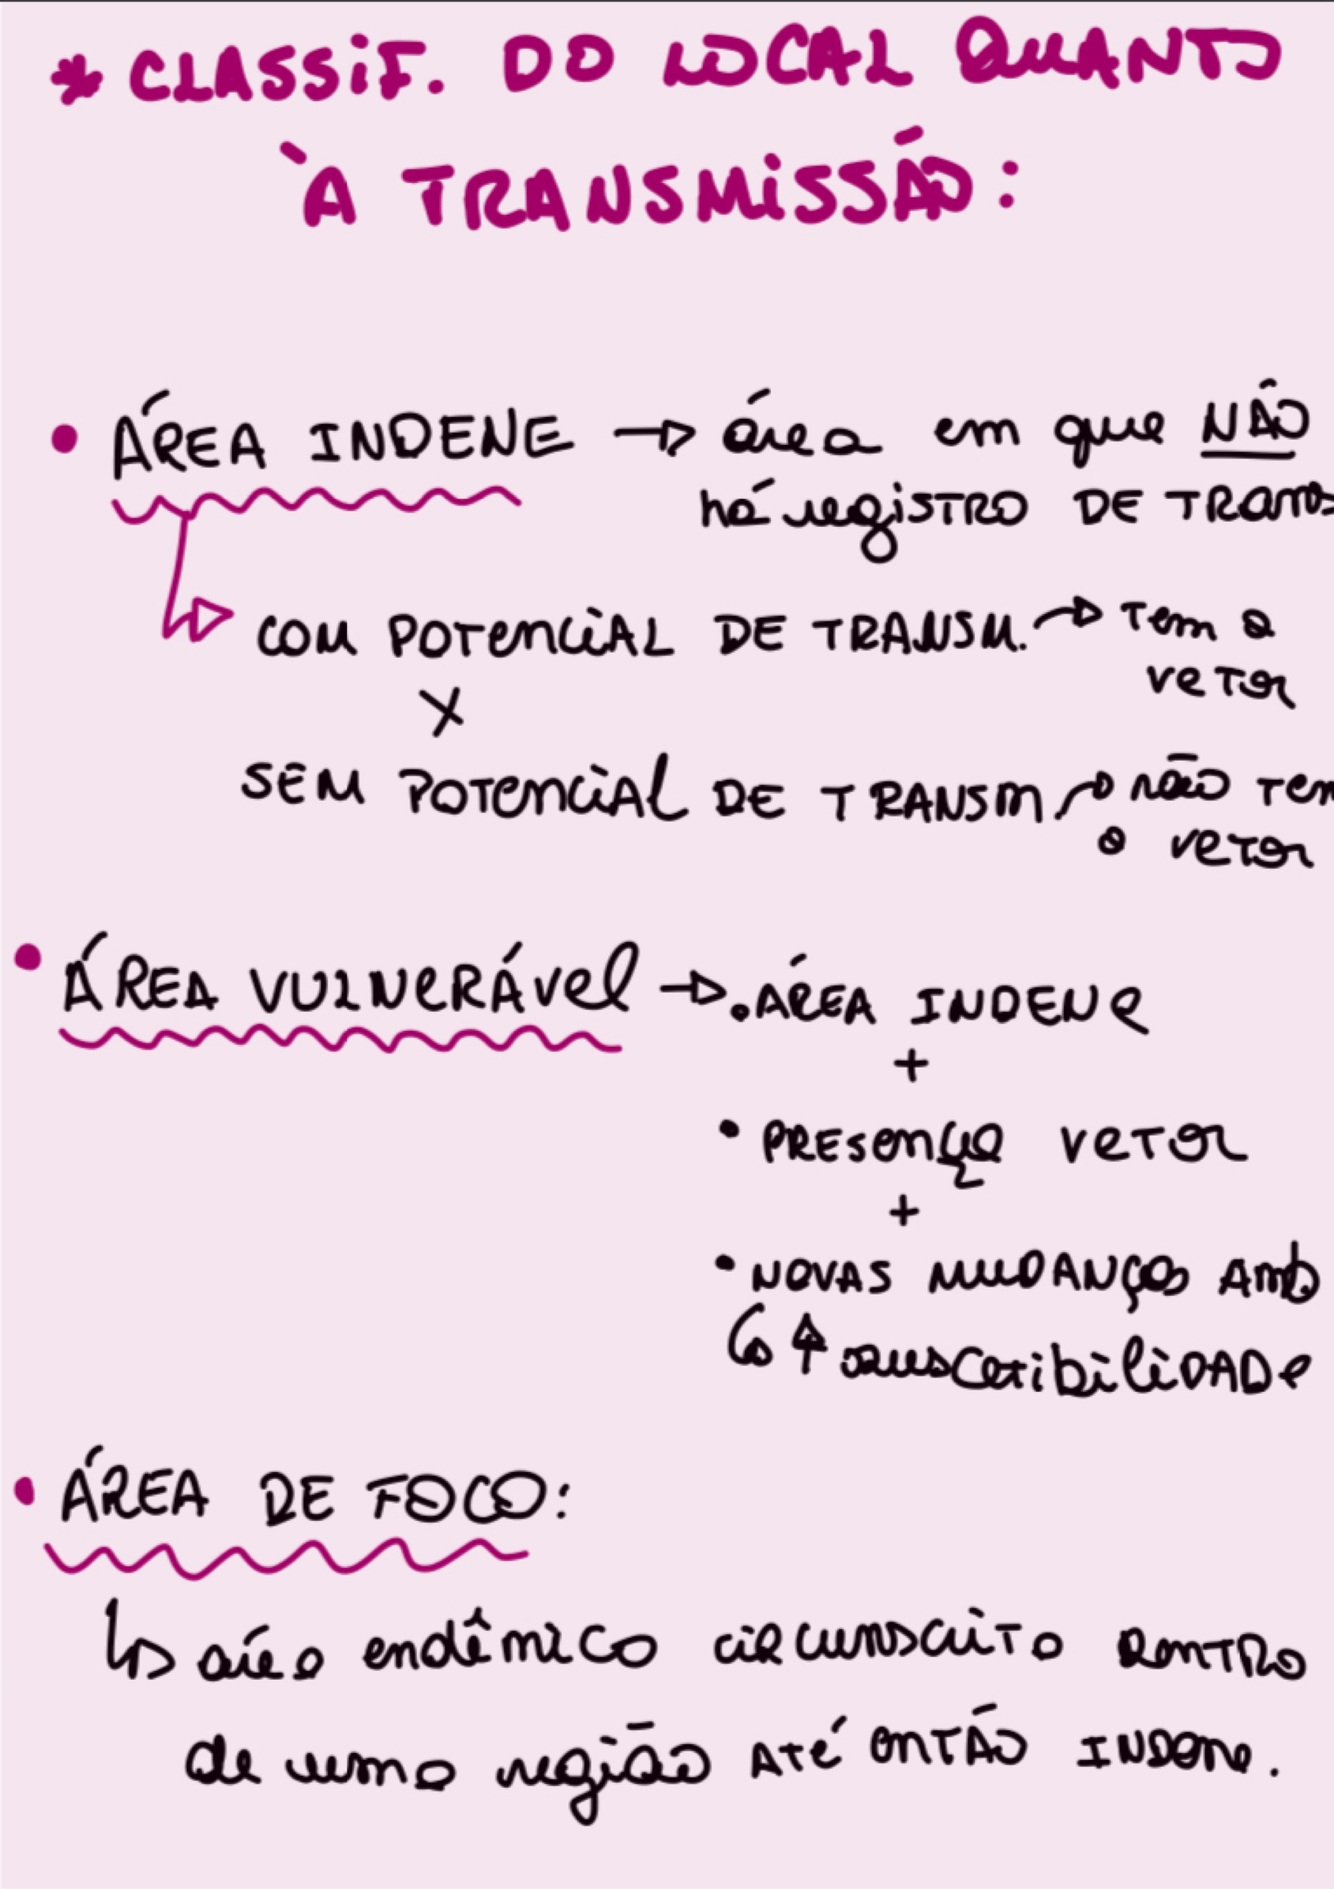 * CLASSIF. DO LOCAL QUANTO
À TRANSMISSÃO:
• ÁREA INDENE → área em que NÃO
há registro DE TRANS
COM POTENCIAL DE TRANSM. → Tem o
vetor
X
SEM POTENCIAL DE TRANSM. → não tem
o vetor
• ÁREA VULNERÁVEL → • ÁREA INDENE
+
• PRESENÇA VETOR
+
• NOVAS MUDANÇAS AMB
↳ ↑ suscetibilidade
• ÁREA DE FOCO:
↳ área endêmico circunscrito DENTRO
de uma região ATÉ ENTÃO INDENE.